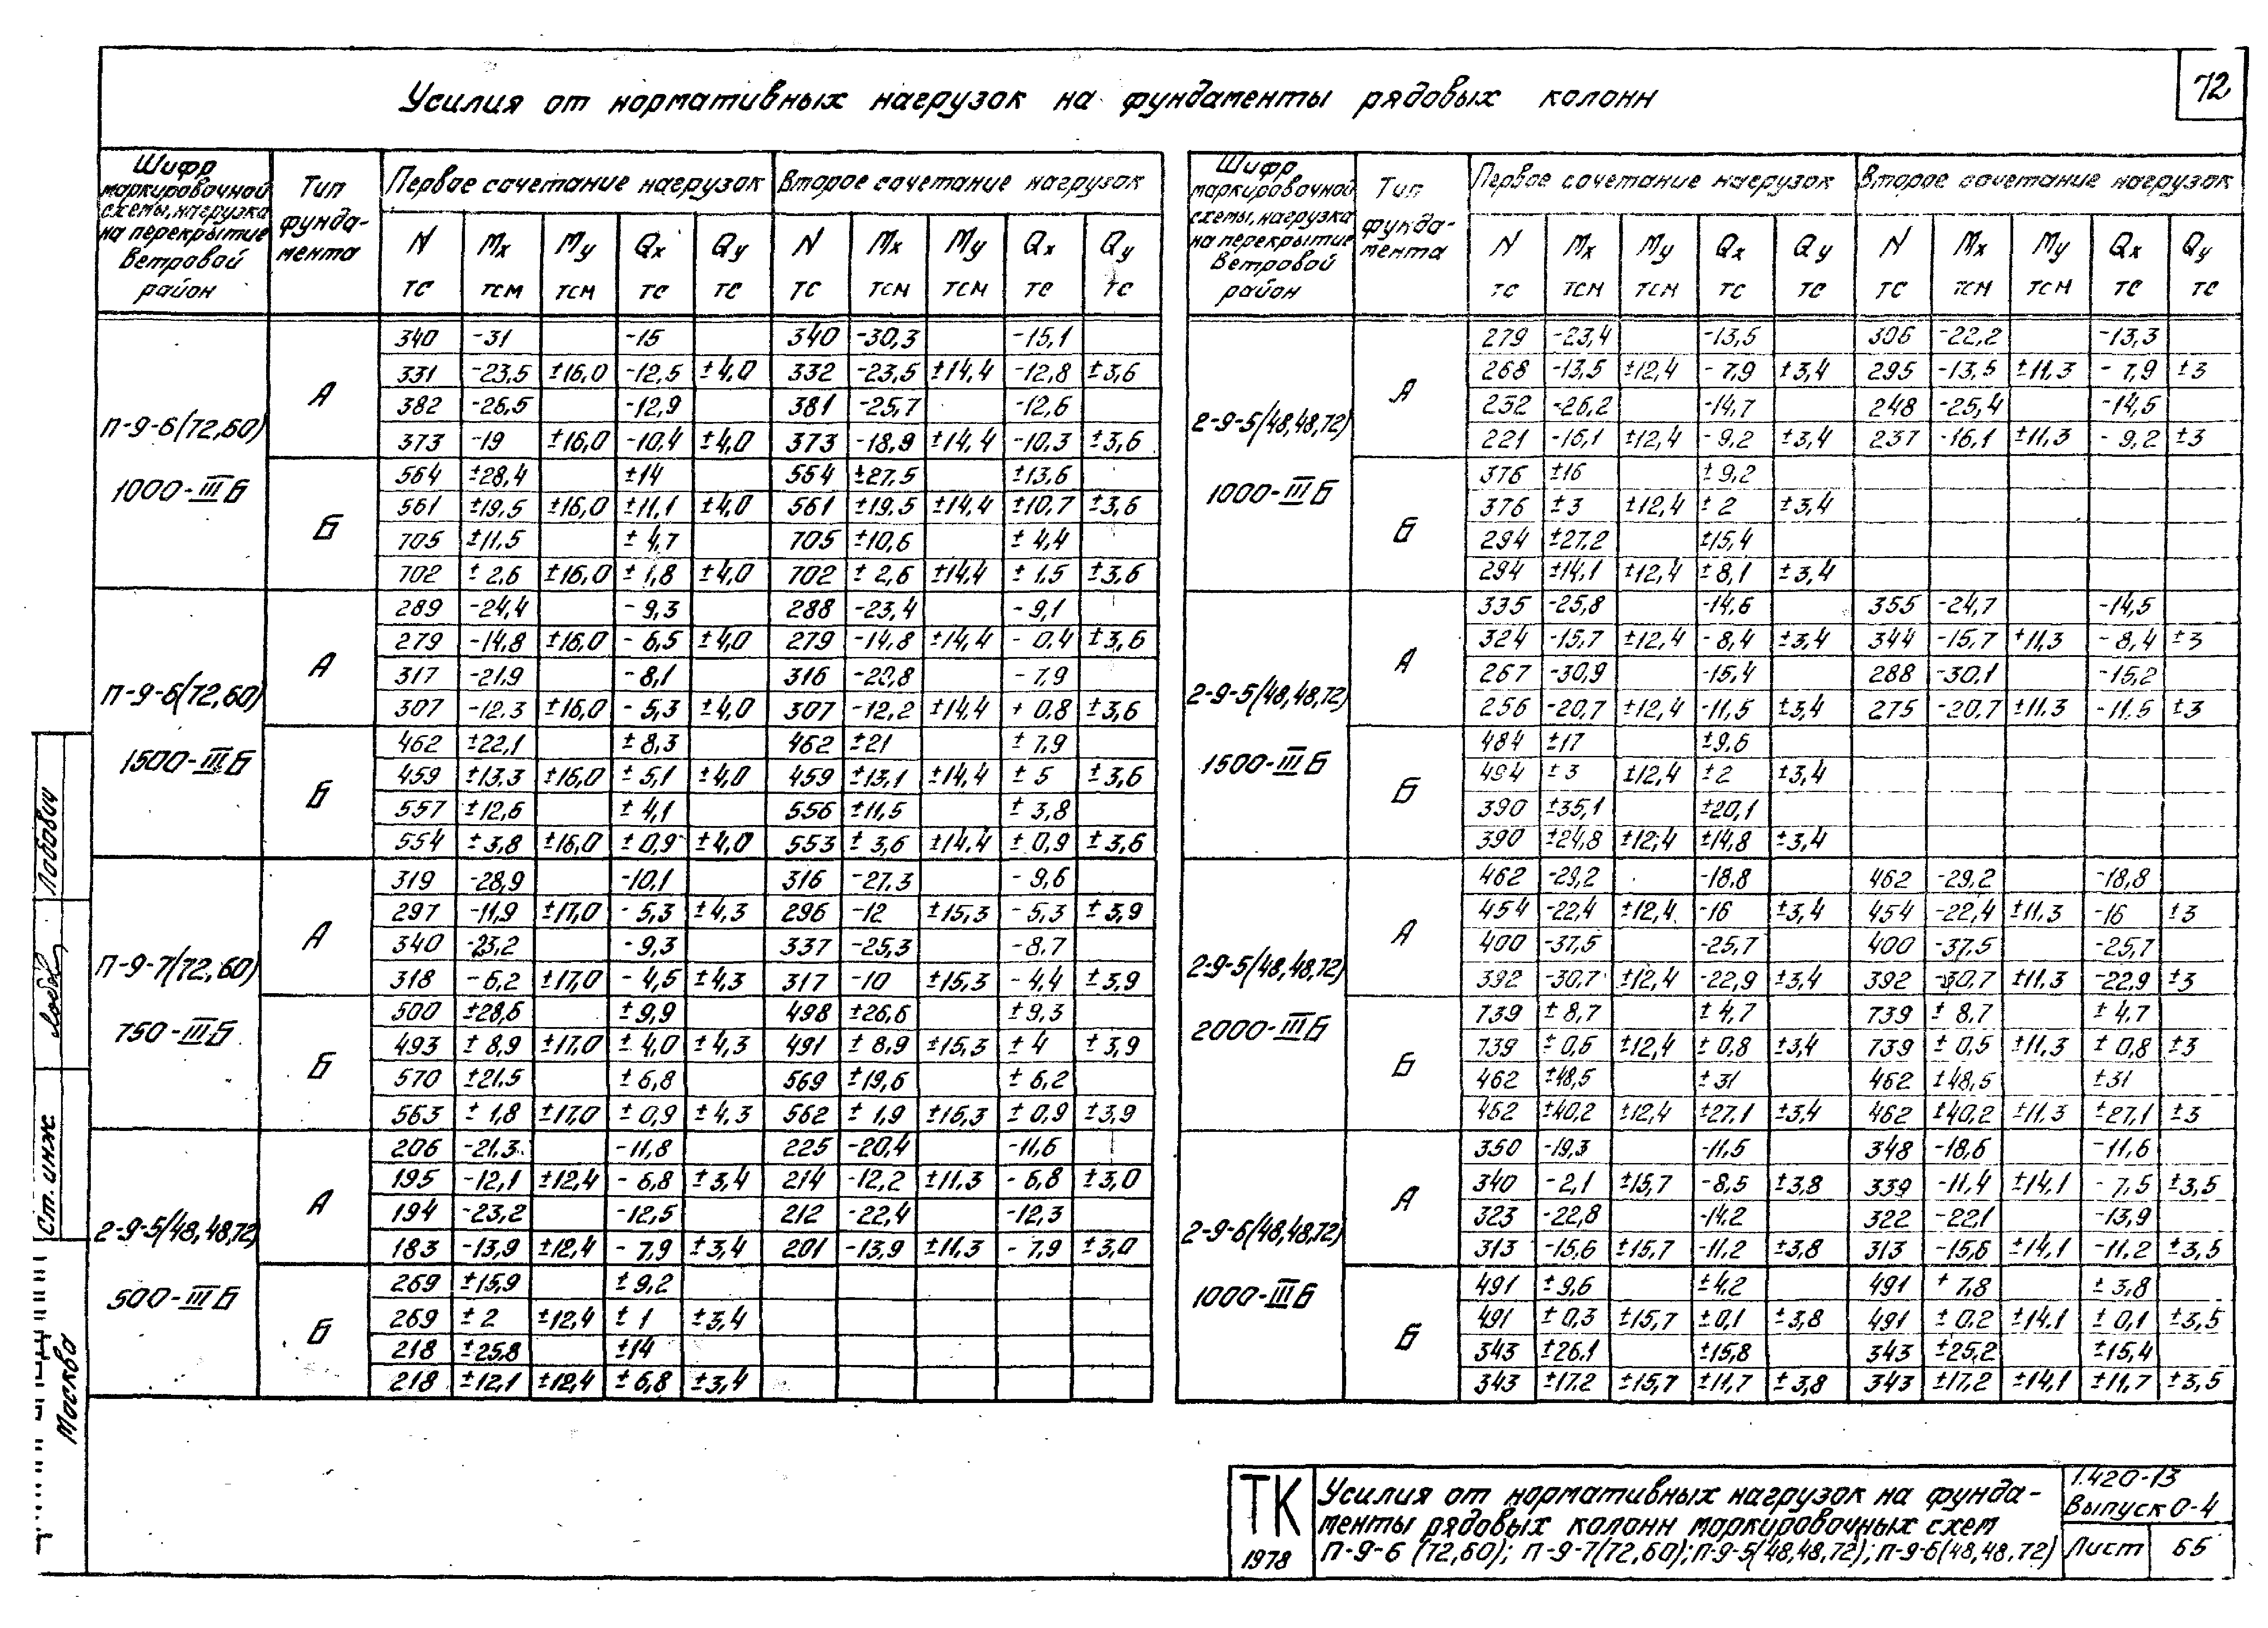 72
Усилия от нормативных нагрузок на фундаменты рядовых колонн
Шифр маркировочной схемы, нагрузка на перекрытие Ветровой район | Тип фунда-мента | Первое сочетание нагрузок | Второе сочетание нагрузок
N тс | Mx тсм | My тсм | Qx тс | Qy тс | N тс | Mx тсм | My тсм | Qx тс | Qy тс
П-9-6(72,60)
1000-III Б
А
340 -31 -15 340 -30,3 -15,1
331 -23,5 ±16,0 -12,5 ±4,0 332 -23,5 ±14,4 -12,8 ±3,6
382 -26,5 -12,9 381 -25,7 -12,6
373 -19 ±16,0 -10,4 ±4,0 373 -18,9 ±14,4 -10,3 ±3,6
Б
564 ±28,4 ±14 564 ±27,5 ±13,6
561 ±19,5 ±16,0 ±11,1 ±4,0 561 ±19,5 ±14,4 ±10,7 ±3,6
705 ±11,5 ±4,7 705 ±10,6 ±4,4
702 ±2,6 ±16,0 ±1,8 ±4,0 702 ±2,6 ±14,4 ±1,5 ±3,6
П-9-6(72,60)
1500-III Б
А
289 -24,4 -9,3 288 -23,4 -9,1
279 -14,8 ±16,0 -6,5 ±4,0 279 -14,8 ±14,4 -0,4 ±3,6
317 -21,9 -8,1 316 -20,8 -7,9
307 -12,3 ±16,0 -5,3 ±4,0 307 -12,2 ±14,4 + 0,8 ±3,6
Б
462 ±22,1 ±8,3 462 ±21 ±7,9
459 ±13,3 ±16,0 ±5,1 ±4,0 459 ±13,1 ±14,4 ±5 ±3,6
557 ±12,6 ±4,1 556 ±11,5 ±3,8
554 ±3,8 ±16,0 ±0,9 ±4,0 553 ±3,6 ±14,4 ±0,9 ±3,6
П-9-7(72,60)
750-III Б
А
319 -28,9 -10,1 316 -27,3 -9,6
297 -11,9 ±17,0 -5,3 ±4,3 296 -12 ±15,3 -5,3 ±3,9
340 -23,2 -9,3 337 -25,3 -8,7
318 -6,2 ±17,0 -4,5 ±4,3 317 -10 ±15,3 -4,4 ±3,9
Б
500 ±28,6 ±9,9 498 ±26,6 ±9,3
493 ±8,9 ±17,0 ±4,0 ±4,3 491 ±8,9 ±15,3 ±4 ±3,9
570 ±21,5 ±6,8 569 ±19,6 ±6,2
563 ±1,8 ±17,0 ±0,9 ±4,3 562 ±1,9 ±15,3 ±0,9 ±3,9
2-9-5(48,48,72)
500-III Б
А
206 -21,3 -11,8 225 -20,4 -11,6
195 -12,1 ±12,4 -6,8 ±3,4 214 -12,2 ±11,3 -6,8 ±3,0
194 -23,2 -12,5 212 -22,4 -12,3
183 -13,9 ±12,4 -7,9 ±3,4 201 -13,9 ±11,3 -7,9 ±3,0
Б
269 ±15,9 ±9,2
269 ±2 ±12,4 ±1 ±3,4
218 ±25,8 ±14
218 ±12,1 ±12,4 ±6,8 ±3,4
Шифр маркировочной схемы, нагрузка на перекрытие Ветровой район | Тип фунда-мента | Первое сочетание нагрузок | Второе сочетание нагрузок
N тс | Mx тсм | My тсм | Qx тс | Qy тс | N тс | Mx тсм | My тсм | Qx тс | Qy тс
2-9-5(48,48,72)
1000-III Б
А
279 -23,4 -13,5 306 -22,2 -13,3
268 -13,5 ±12,4 -7,9 ±3,4 295 -13,5 ±11,3 -7,9 ±3
232 -26,2 -14,7 248 -25,4 -14,5
221 -16,1 ±12,4 -9,2 ±3,4 237 -16,1 ±11,3 -9,2 ±3
Б
376 ±16 ±9,2
376 ±3 ±12,4 ±2 ±3,4
294 ±27,2 ±15,4
294 ±14,1 ±12,4 ±8,1 ±3,4
2-9-5(48,48,72)
1500-III Б
А
335 -25,8 -14,6 355 -24,7 -14,5
324 -15,7 ±12,4 -8,4 ±3,4 344 -15,7 +11,3 -8,4 ±3
267 -30,9 -15,4 288 -30,1 -15,2
256 -20,7 ±12,4 -11,5 ±3,4 275 -20,7 ±11,3 -11,5 ±3
Б
484 ±17 ±9,6
494 ±3 ±12,4 ±2 ±3,4
390 ±35,1 ±20,1
390 ±24,8 ±12,4 ±14,8 ±3,4
2-9-5(48,48,72)
2000-III Б
А
462 -29,2 -18,8 462 -29,2 -18,8
454 -22,4 ±12,4 -16 ±3,4 454 -22,4 ±11,3 -16 ±3
400 -37,5 -25,7 400 -37,5 -25,7
392 -30,7 ±12,4 -22,9 ±3,4 392 -30,7 ±11,3 -22,9 ±3
Б
739 ±8,7 ±4,7 739 ±8,7 ±4,7
739 ±0,6 ±12,4 ±0,8 ±3,4 739 ±0,5 ±11,3 ±0,8 ±3
462 ±48,5 ±31 462 ±48,5 ±31
462 ±40,2 ±12,4 ±27,1 ±3,4 462 ±40,2 ±11,3 ±27,1 ±3
2-9-6(48,48,72)
1000-III Б
А
350 -19,3 -11,5 348 -18,6 -11,6
340 -2,1 ±15,7 -8,5 ±3,8 339 -11,4 ±14,1 -7,5 ±3,5
323 -22,8 -14,2 322 -22,1 -13,9
313 -15,6 ±15,7 -11,2 ±3,8 313 -15,6 ±14,1 -11,2 ±3,5
Б
491 ±9,6 ±4,2 491 + 7,8 ±3,8
491 ±0,3 ±15,7 ±0,1 ±3,8 491 ±0,2 ±14,1 ±0,1 ±3,5
343 ±26,1 ±15,8 343 ±25,2 ±15,4
343 ±17,2 ±15,7 ±11,7 ±3,8 343 ±17,2 ±14,1 ±11,7 ±3,5
Ст. инж
Лобович
Москва
ТК
1978
Усилия от нормативных нагрузок на фунда-
менты рядовых колонн маркировочных схем
П-9-6 (72,60); П-9-7(72,60); П-9-5(48,48,72); П-9-6(48,48,72)
1.420-13
Выпуск 0-4
Лист 65